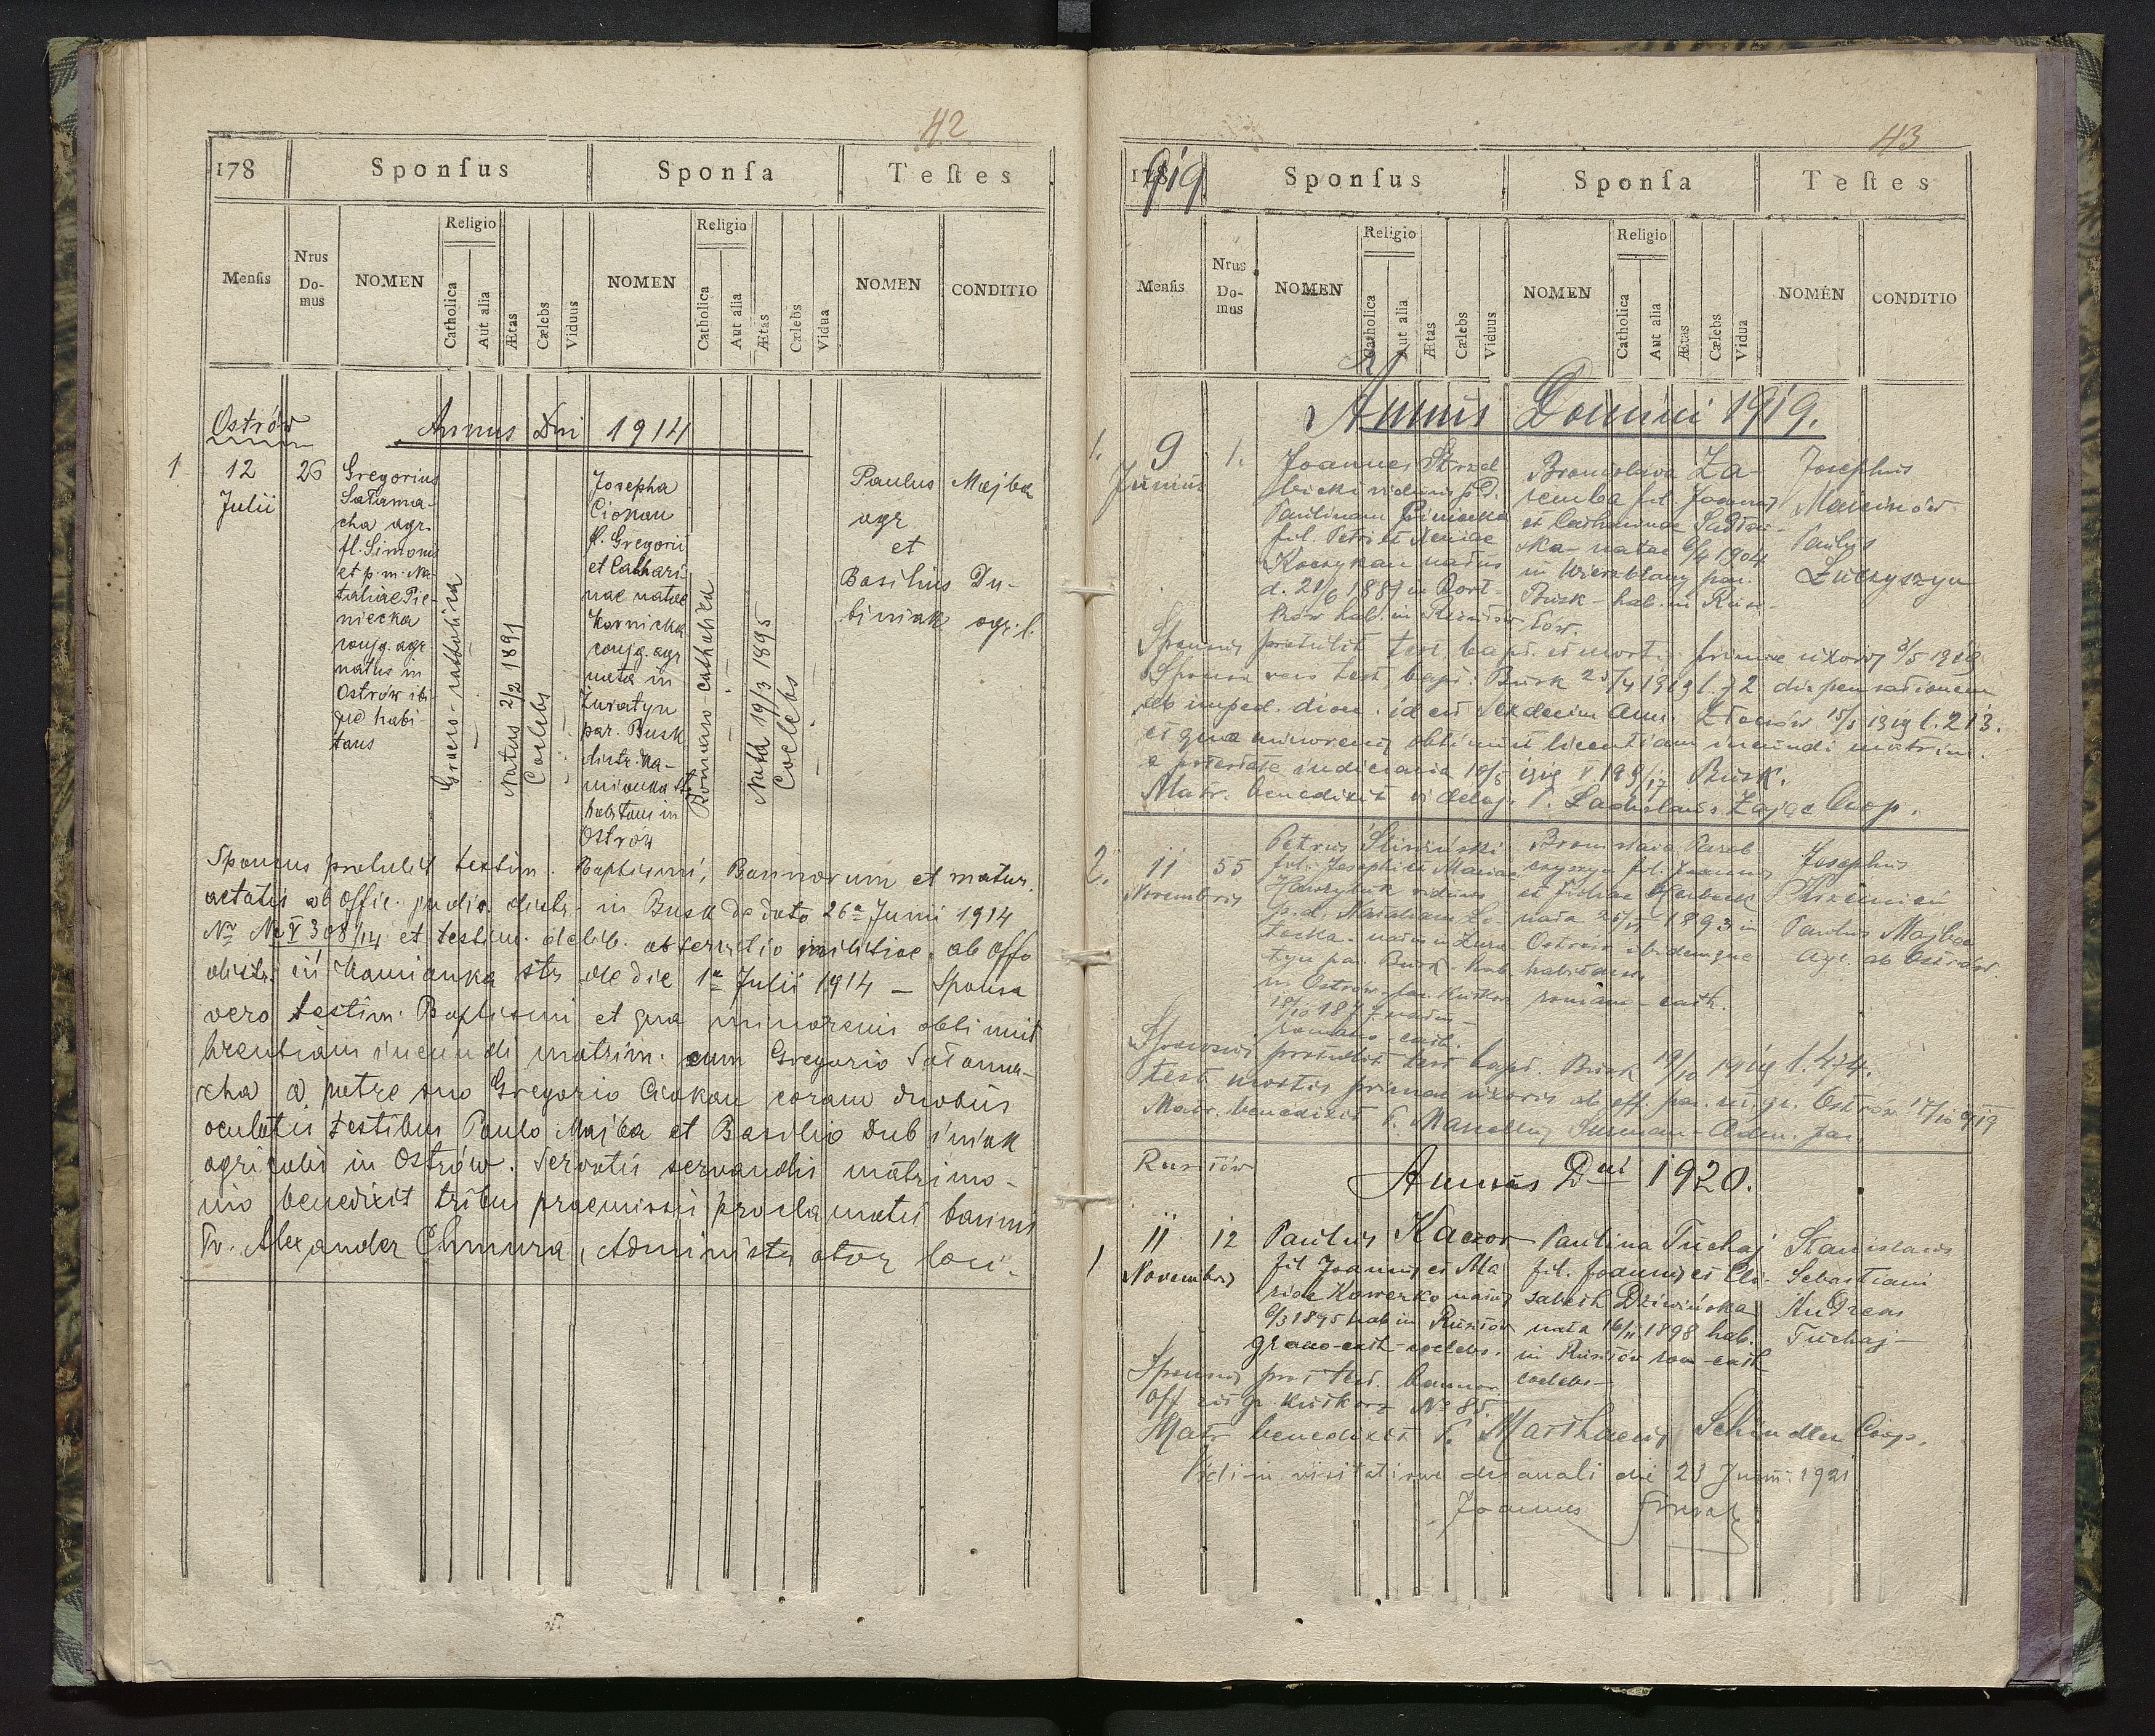 42
178 Sponſus Sponſa Teſtes
Menſis Nrus Domus NOMEN Religio Catholica Aut alia Ætas Cælebs Viduus NOMEN Religio Catholica Aut alia Ætas Cælebs Vidua NOMEN CONDITIO
Ostrów
Annus Dni 1914
1
12
Julii
26
Gregorius
Satama-
cha agr.
fl. Simonis
et p. m. Na-
taliae Pie-
niecka
conjg. agr
natus in
Ostrów ibi
que habi-
tans
Graeco-catholica
Natus 2/2 1891
Coelebs
Josepha
Ciokan
fl. Gregorii
et Cathari-
nae natae
Kornicka
conjg. agr
nata in
Żuratyn
par. Busk
distr. Ka-
mionka st
habitans in
Ostrów
Romano-catholica
Nata 19/3 1895
Coelebs
Paulus Majba
agr
et
Basilius Du-
biniak agr. l.
Sponsus protulit testim. Baptismi, Bannorum et matur.
aetatis ab offic. judic. distr. in Busk de dato 26a Junii 1914
Nr Nc V 308/14 et testim. delib. ab servitio militiae ab offo
distr. in Kamionka str de die 1a Julii 1914 – Sponsa
vero testim. Baptismi et qua minorenis obtinuit
licentiam ineundi matrim. cum Gregorio Satama-
cha a patre suo Gregorio Ciokan coram duobus
oculatis testibus Paulo Majba et Basilio Dubiniak
agricolis in Ostrów. Servatis servandis matrimo-
nio benedixit tribus praemissis proclamatis bannis
Pr. Alexander Chmura, Administrator loci.
43
1919 Sponſus Sponſa Teſtes
Menſis Nrus Domus NOMEN Religio Catholica Aut alia Ætas Cælebs Viduus NOMEN Religio Catholica Aut alia Ætas Cælebs Vidua NOMEN CONDITIO
Annus Domini 1919.
1.
9
Junius
1.
Joannes Strzel
bicki viduus p. d.
Paulinam
fil. Petri et Xeniae
Koczykan natus
d. 21/6 1887 in Port-
ków hab. in Rusiłów
Bronislava Za-
remba fil. Joannis
et Catharinae
ska - natae 6/4 1904
in Wierzblany par.
Busk - hab. in Rusi-
łów.
Josephus
Marcinów
Paulus
Łuczyszyn
Sponsus protulit test. bapt. et mortis primae uxoris 3/5 1919
Sponsa vero test. bapt. Busk 25/4 1919 l. 92 dispensationem
ab imped. dioec. id est sexdecim ann. Złoczów 15/5 1919 l. 213.
et qua minorenis obtinuit licentiam ineundi matrim.
a potestate iudiciaria 10/5 1919 V 199/17 Busk.
Matr. benedixit vi deleg. P. Ladislaus Zając Coop.
2.
11
Novembris
55
Petrus Śliwiński
fil. Josephi et Mariae
Hawryluk viduus
p. d. Nataliam
natus in Żura-
tyn par. Busk - hab.
in Ostrów par. Kutkorz
18/10 1877 natus
romano-cath.
Bronislava Parob-
czyczyn fil. Joannis
et Judviae
nata 25/ 1893 in
Ostrów ibidemque
habitans
romano-cath.
Josephus
Krzemień
Paulus Majba
Agr. ab Ostrów.
Sponsus protulit test bapt. Busk 19/10 1919 l. 474.
test mortis primae uxoris ab off. par. rit. gr. Ostrów 17/10 919
Matr. benedixit P. Marcellus Adm. par.
Rusiłów
Annus Dni 1920.
1
11
Novembris
12
Paulus Kaczor
fil Joannis et Ma
riae Kawerko natus
6/3 1895 hab in Rusiłów
graeco-cath-coelebs.
Paulina Tuchaj
fil. Joannis et Eli-
sabeth Dziwińska
nata 16/11 1898 hab.
in Rusiłów rom-cath
coelebs
Stanislaus
Sebastiani
Andreas
Tuchaj
Sponsus prot test. bannor.
off rit gr. Kutkorz No 85.
Matr benedixit P. Matthaeus Schindler Coop.
Vidi in visitatione decanali die 23 Junii 1921
Joannes